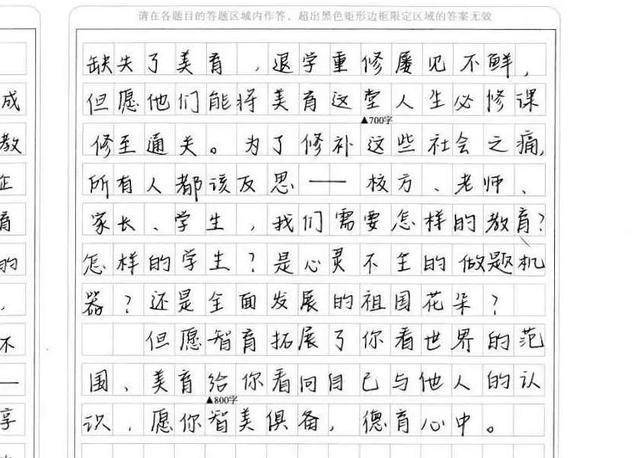 请在各题目的答题区域内作答，超出黑色矩形边框限定区域的答案无效
缺失了美育，退学重修屡见不鲜，
但愿他们能将美育这堂人生必修课
▲700字
修至通关。为了修补这些社会之痛，
所有人都该反思——校方、老师、
家长、学生，我们需要怎样的教育？
怎样的学生？是心灵不全的做题机
器？还是全面发展的祖国花朵？
但愿智育拓展了你看世界的范
围、美育给你看向自己与他人的认
▲800字
识，愿你智美俱备，德育心中。
成
教
育
的
，
不
——
享